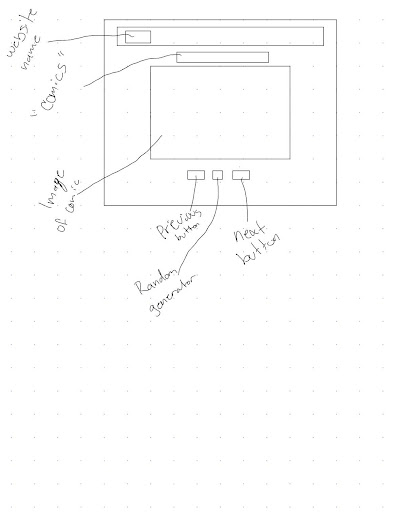 website
name
"Comics"
Image
of comic
Previous
button
Random
generator
next
button